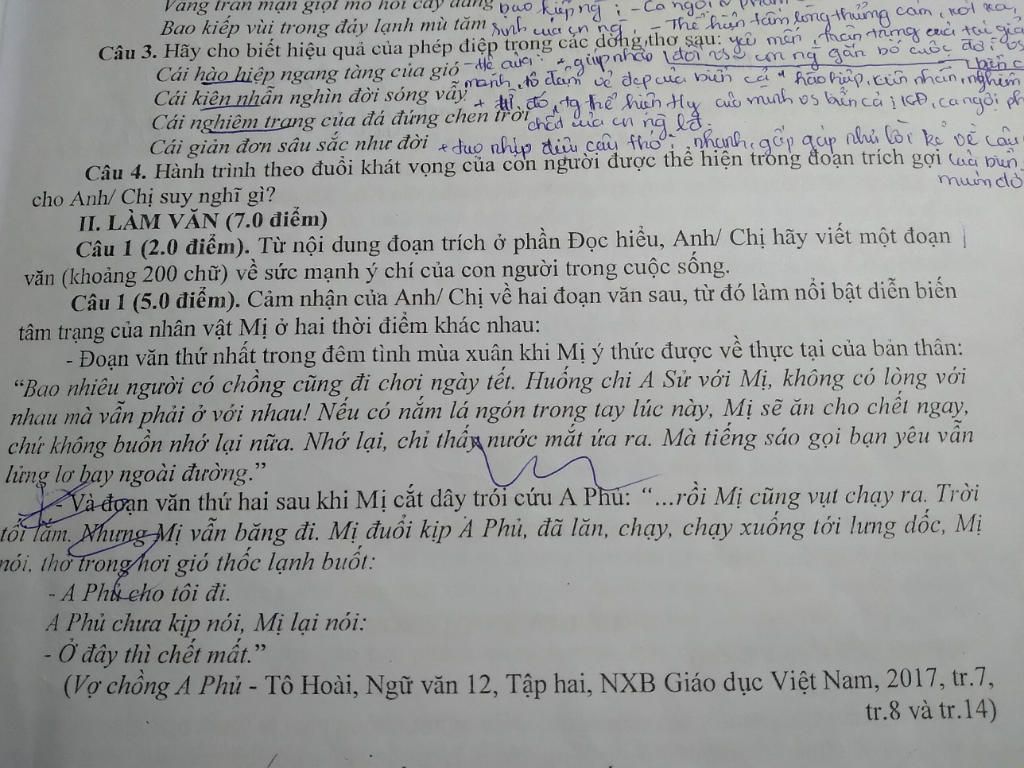 Vầng trán mặn giọt mồ hôi cay đắng
Bao kiếp vùi trong đáy lạnh mù tăm
bao kiếp ng ; - Ca ngợi
sinh của cn ng - Thể hiện tấm lòng thương cảm, xót xa,
Câu 3. Hãy cho biết hiệu quả của phép điệp trong các dòng thơ sau: yêu mến, trân trọng của tác giả
Cái hào hiệp ngang tàng của gió
Cái kiên nhẫn nghìn đời sóng vẫy
Cái nghiêm trang của đá đứng chen trời
Cái giản đơn sâu sắc như đời
mạnh, tô đậm vẻ đẹp của biển cả + hào hiệp, kiên nhẫn, nghiêm
+ tạo nhịp điệu câu thơ, nhanh, gấp gáp như lời kể về câu
Câu 4. Hành trình theo đuổi khát vọng của con người được thể hiện trong đoạn trích gợi của biển
cho Anh/ Chị suy nghĩ gì?
II. LÀM VĂN (7.0 điểm)
Câu 1 (2.0 điểm). Từ nội dung đoạn trích ở phần Đọc hiểu, Anh/ Chị hãy viết một đoạn
văn (khoảng 200 chữ) về sức mạnh ý chí của con người trong cuộc sống.
Câu 1 (5.0 điểm). Cảm nhận của Anh/ Chị về hai đoạn văn sau, từ đó làm nổi bật diễn biến
tâm trạng của nhân vật Mị ở hai thời điểm khác nhau:
- Đoạn văn thứ nhất trong đêm tình mùa xuân khi Mị ý thức được về thực tại của bản thân:
“Bao nhiêu người có chồng cũng đi chơi ngày tết. Huống chi A Sử với Mị, không có lòng với
nhau mà vẫn phải ở với nhau! Nếu có nắm lá ngón trong tay lúc này, Mị sẽ ăn cho chết ngay,
chứ không buồn nhớ lại nữa. Nhớ lại, chỉ thấy nước mắt ứa ra. Mà tiếng sáo gọi bạn yêu vẫn
lửng lơ bay ngoài đường.”
- Và đoạn văn thứ hai sau khi Mị cắt dây trói cứu A Phủ: “...rồi Mị cũng vụt chạy ra. Trời
tối lắm. Nhưng Mị vẫn băng đi. Mị đuổi kịp A Phủ, đã lăn, chạy, chạy xuống tới lưng dốc, Mị
nói, thở trong hơi gió thốc lạnh buốt:
- A Phủ cho tôi đi.
A Phủ chưa kịp nói, Mị lại nói:
- Ở đây thì chết mất.”
(Vợ chồng A Phủ - Tô Hoài, Ngữ văn 12, Tập hai, NXB Giáo dục Việt Nam, 2017, tr.7,
tr.8 và tr.14)